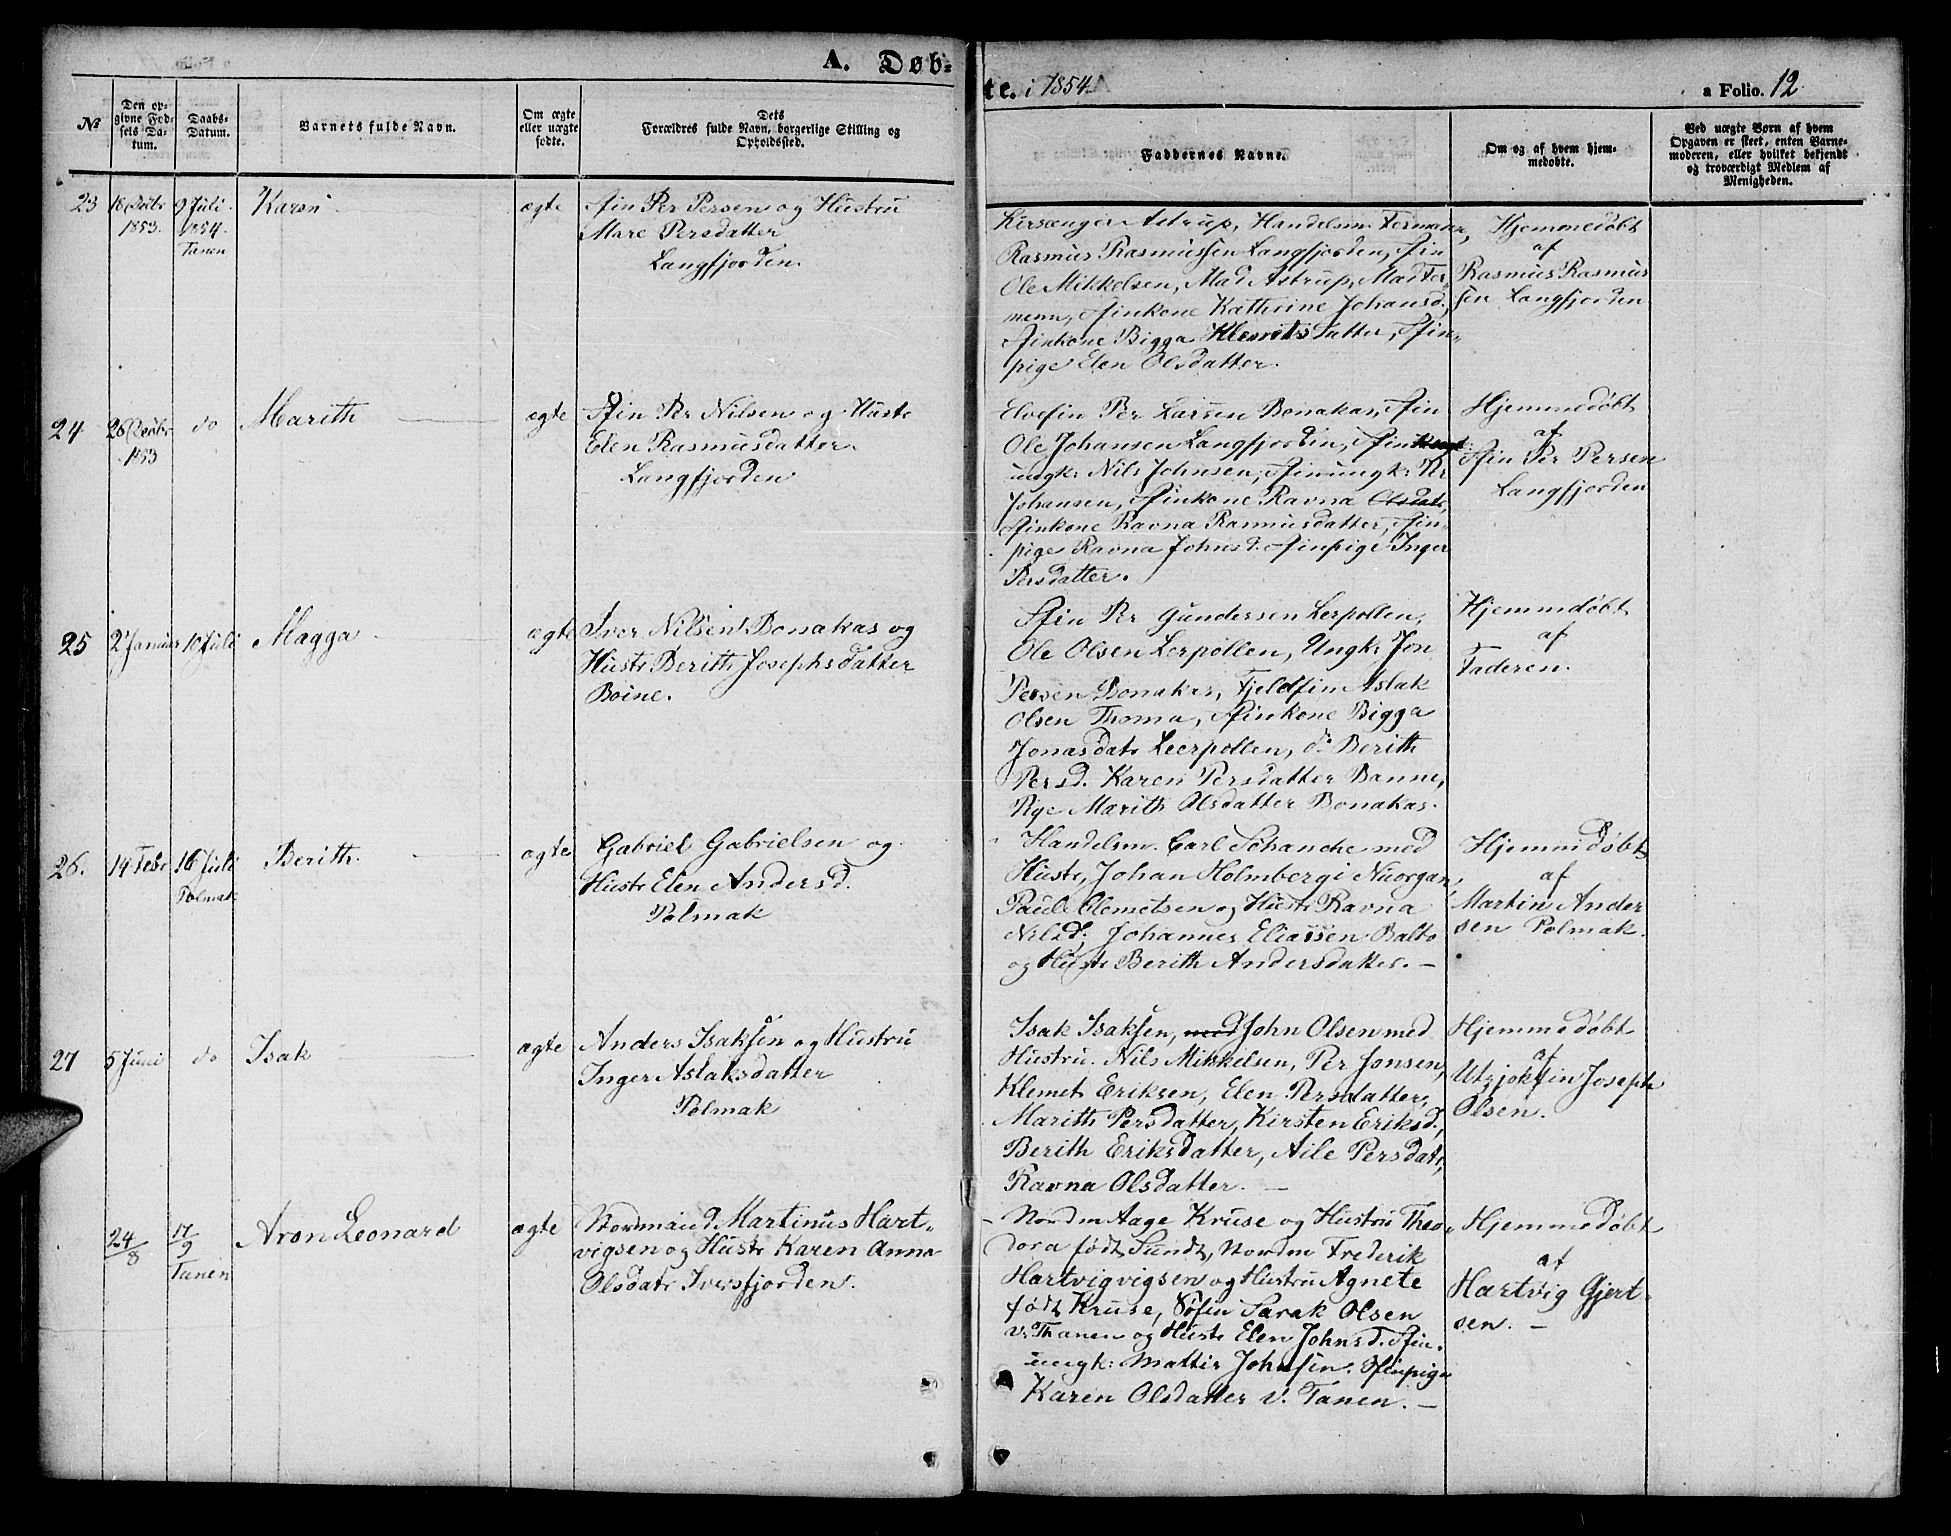 A. Døb-
te. i 1854
a Folio. 12
№
Den op-
givne Fød-
sels Da-
tum.
Daabs-
Datum.
Barnets fulde Navn.
Om ægte
eller uægte
fødte.
Dets
Forældres fulde Navn, borgerlige Stilling og
Opholdssted.
Faddernes Navne.
Om og af hvem hjem-
medøbte.
Ved uægte Børn af hvem
Opgaven er skeet, enten Barne-
moderen, eller hvilket bekjendt
og troværdigt Medlem af
Menigheden.
23
1853.
9 Juli
1854.
Tanen
Karen
ægte
Sfin Per Persen og Hustru
Mare Persdatter
Langfjorden.
Kirsanger Astrup, Handelsm. Fermann,
Rasmus Rasmussen Langfjorden, Sfin
Ole Mikkelsen, Mad Astrup, Mad Fer-
menn, Sfinkone Kathrine Johansd.,
Sfinkone Bigga Klemetsdatter, Sfin-
pige Elen Olsdatter.
Hjemmedøbt
af
Rasmus Rasmus
sen Langfjorden
24
1853
do
Marith
ægte
Sfin Per Nilsen og Hustr
Elen Rasmusdatter.
Langfjorden
Elvefin Per Larsen Bonakas, Sfin
Ole Johansen Langfjorden, Sfin
ungk: Nils Johnsen, Sfinungk: Per
Johansen, Sfinkone Ravna Olsdatr,
Sfinkone Ravna Rasmusdatter, Sfin-
pige Ravna Johnsd. Sfinpige Inger
Persdatter.
Hjemmedøbt
af
Sfin Per Persen
Langfjorden
25
2 Januar
10 Juli
Magga
ægte
Iver Nilsen Bonakas og
Hustr Berith Josephsdatter
Boine.
Sfin Per Gundersen Lerpollen,
Ole Olsen Lerpollen, Ungk: Jon
Persen Bonakas, Fjeldfin Aslak
Olsen Thoma, Sfinkone Bigga
Jonasdatr Leerpollen, do Berith
Persd. Karen Persdatter Banne,
Pige Marith Olsdatter Bonakas.
Hjemmedøbt
af
Faderen.
26.
14 Febr
16 Juli
Polmak
Berith.
ægte
Gabriel Gabrielsen og
Hustr Elen Andersd.
Polmak
Handelsm. Carl Schanche med
Hustr, Johan Holmberg i Nuorgan,
Paul Clemetsen og Hustr Ravna
Nilsd; Johannes Eliassen Balto
og Hustr Berith Andersdatter. —
Hjemmedøbt
af
Martin Ander
sen Polmak.
27
5 Juni
do
Isak
ægte
Anders Isaksen og Hustru
Inger Aslaksdatter
Polmak
Isak Isaksen, med John Olsen med
Hustru. Nils Mikkelsen, Per Jonsen,
Klemet Eriksen, Elen Persdatter,
Marith Persdatter, Kirsten Eriksd.,
Berith Eriksdatter, Aile Persdatr,
Ravna Olsdatter. —
Hjemmedøbt
af
Utzjokfin Joseph
Olsen.
24/8
17/9
Tanen
Aron Leonard
ægte
Nordmand Martinus Hart-
vigsen og Hustr Karen Anna
Olsdatr Iversfjorden.
Nordm Aage Kruse og Hustru Theo-
dora født Sundt, Nordm Frederik
Hartvigvigsen og Hustru Agnete
født Kruse, Søfin Sarak Olsen
v. Thanen og Hustr Elen Johnsd. Sfin.
ungk: Mattis Johnsen. Sfinpige
Karen Olsdatter v. Tanen. —
Hjemmedøbt
af
Hartvig Gjert-
sen. —